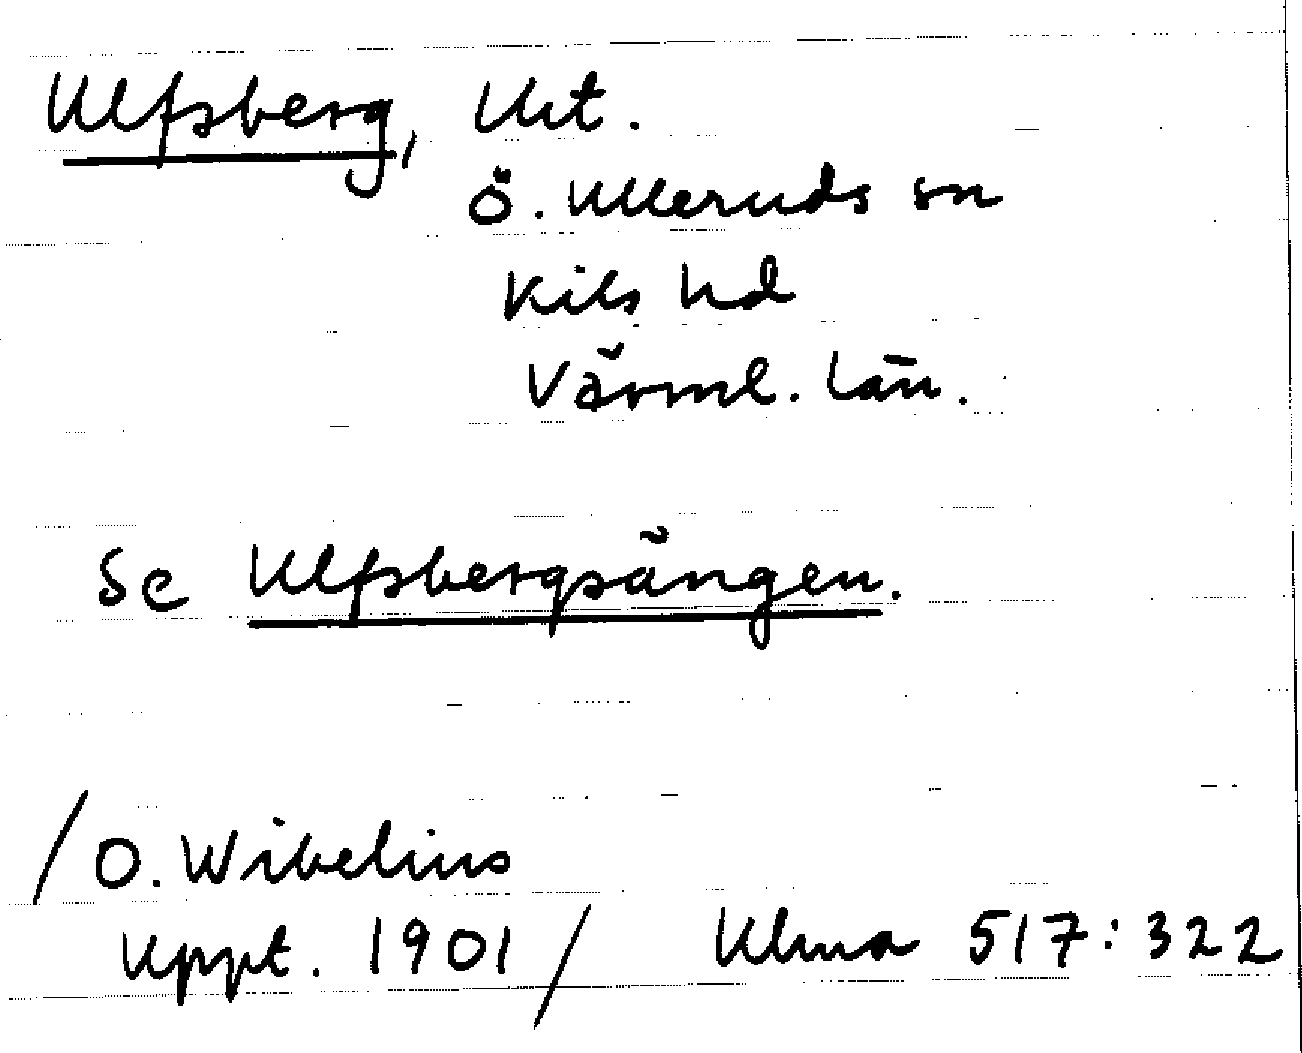 Ulfsberg,
Ö. Ulleruds sn
Kils hd
Värml. län.
Se Ulfsbergsängen.
/O. Wibelius
Uppt. 1901/ Ulma 517:322